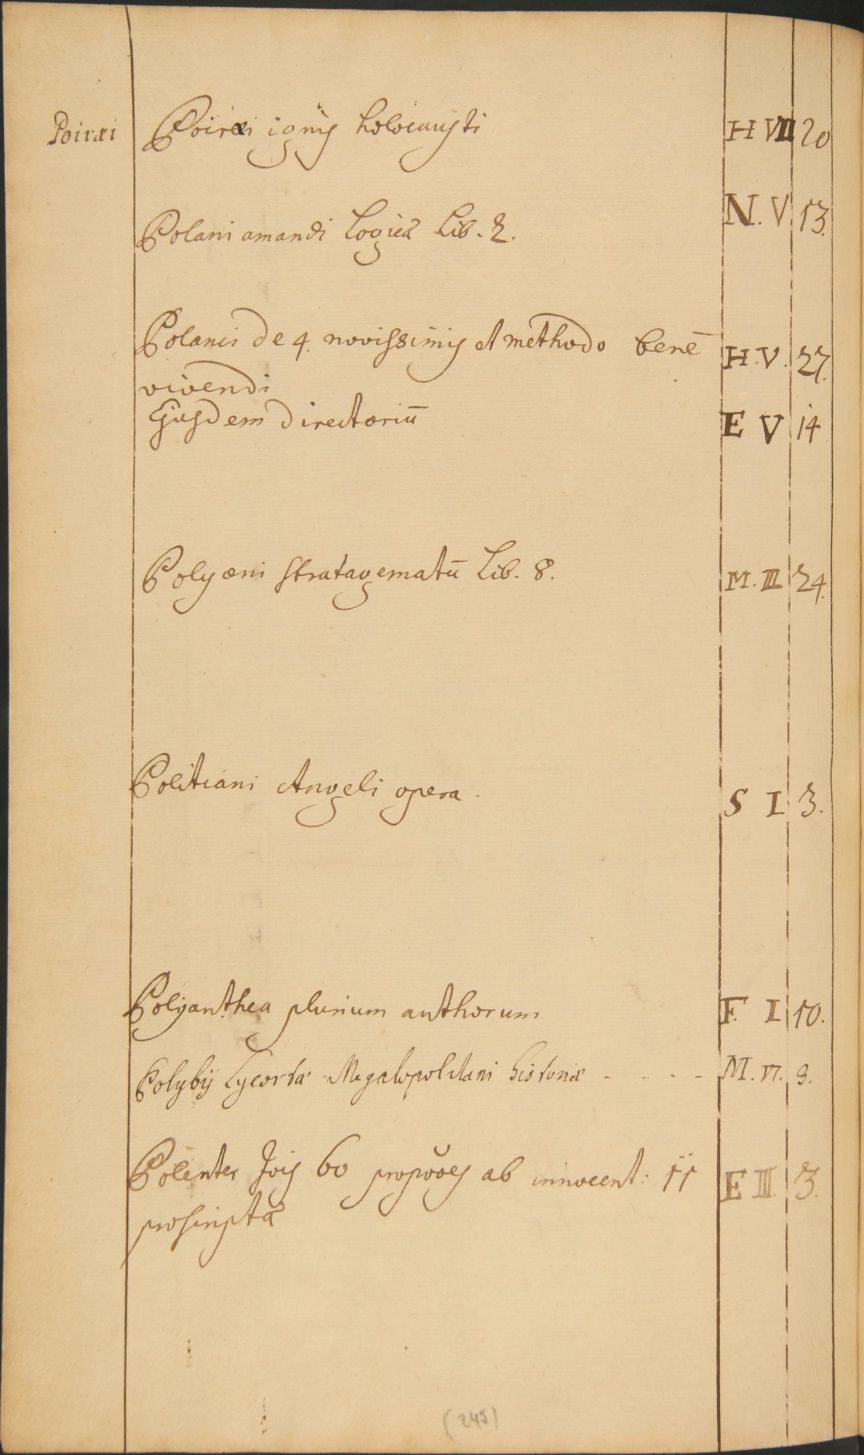 Poiræi Poiræi ignis holocausti H VII 20
Polani amandi Logicæ Lib. 2. N. V 13.
Polanis de 4. novissimis et methodo benē H. V. 27.
vivendi
Ejusdem directoriū E V 14
Polyæni stratagematū Lib. 8. M. III 24.
Politiani Angeli opera. S I 3.
Polyanthea plurium authorum F. I 10.
Polybij Lycortæ Megalopolitani historiæ - - - - M. VI. 9.
Polenter Jois 60 propōoes ab innocent: 11 E III. 3.
proscriptæ
(245)